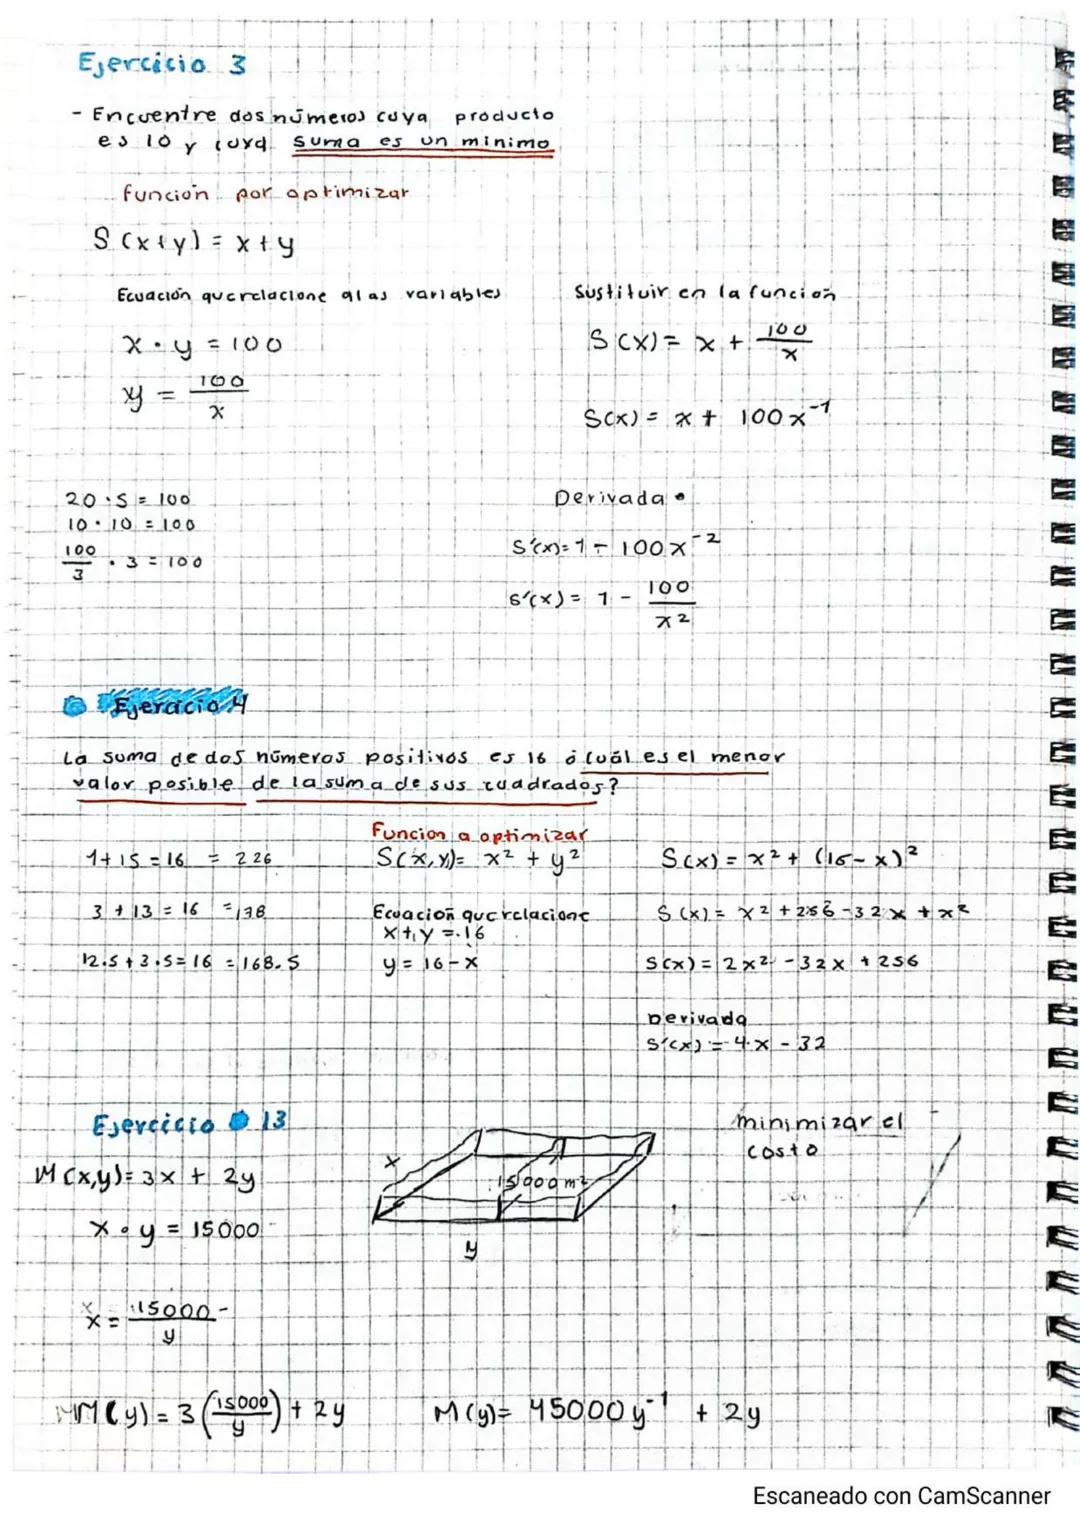 Ejercicio 3
- Encuentre dos números cuya producto
es 10 y cuya suma es un minimo
función por optimizar
S(x+y) = x+y
Ecuación que relacione a las variables
x · y = 100
y = 100/x
Sustituir en la función
S(x) = x + 100/x
S(x) = x + 100x⁻¹
20 · 5 = 100
10 · 10 = 100
100/3 · 3 = 100
Derivada
S'(x) = 1 - 100x⁻²
S'(x) = 1 - 100/x²
Ejercicio 4
La suma de dos números positivos es 16 ¿cuál es el menor
valor posible de la suma de sus cuadrados?
1+15=16 = 226
3+13=16 = 178
12.5+3.5=16 = 168.5
Funcion a optimizar
S(x,y)= x² + y²
Ecuación que relacione
x+y=16
y= 16-x
S(x) = x² + (16-x)²
S(x) = x² + 256 - 32x + x²
S(x) = 2x² - 32x + 256
Derivada
S'(x) = 4x - 32
Ejercicio 13
M(x,y)= 3x + 2y
x · y = 15000
x = 15000/y
x
15000 m²
y
minimizar el
costo
M(y) = 3(15000/y) + 2y
M(y)= 45000y⁻¹ + 2y
Escaneado con CamScanner